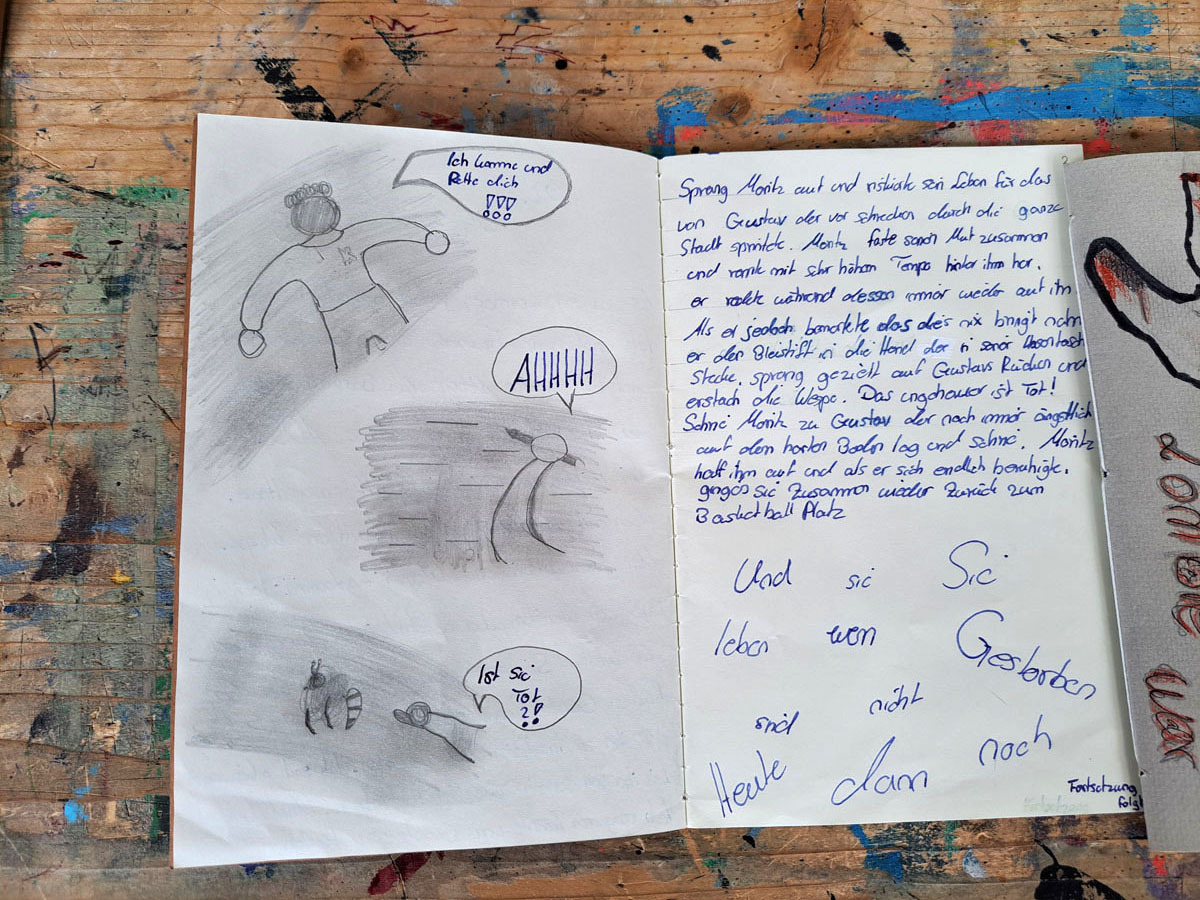 Ich komme und
Rette dich
!!!
AHHHH
Ist sie
Tot
?!
2
Sprang Moritz auf und riskirte sein Leben für das
von Gustav der vor schrecken durch die ganze
Stadt sprintete. Moritz faste seinen Mut zusammen
und rannte mit sehr hohen Tempo hinter ihm her.
er während dessen immer wieder auf ihn
Als er jedoch bemerkte das dies nix bringt nahm
er den Bleistift in die Hand der in seiner Hosentasch
Steckte. sprang gezielt auf Gustavs Rücken und
erstach die Wespe. Das ungeheuer ist Tot!
Schrie Moritz zu Gustav der noch immer ängstlich
auf dem harten Boden lag und schrie. Moritz
half ihm auf und als er sich endlich beruhigte.
gingen sie Zusammen wieder Zurück zum
Basketball Platz
Und sie Sie
leben wen Gestorben
sind nicht
Heute dann noch
Fortsetzung
folgt